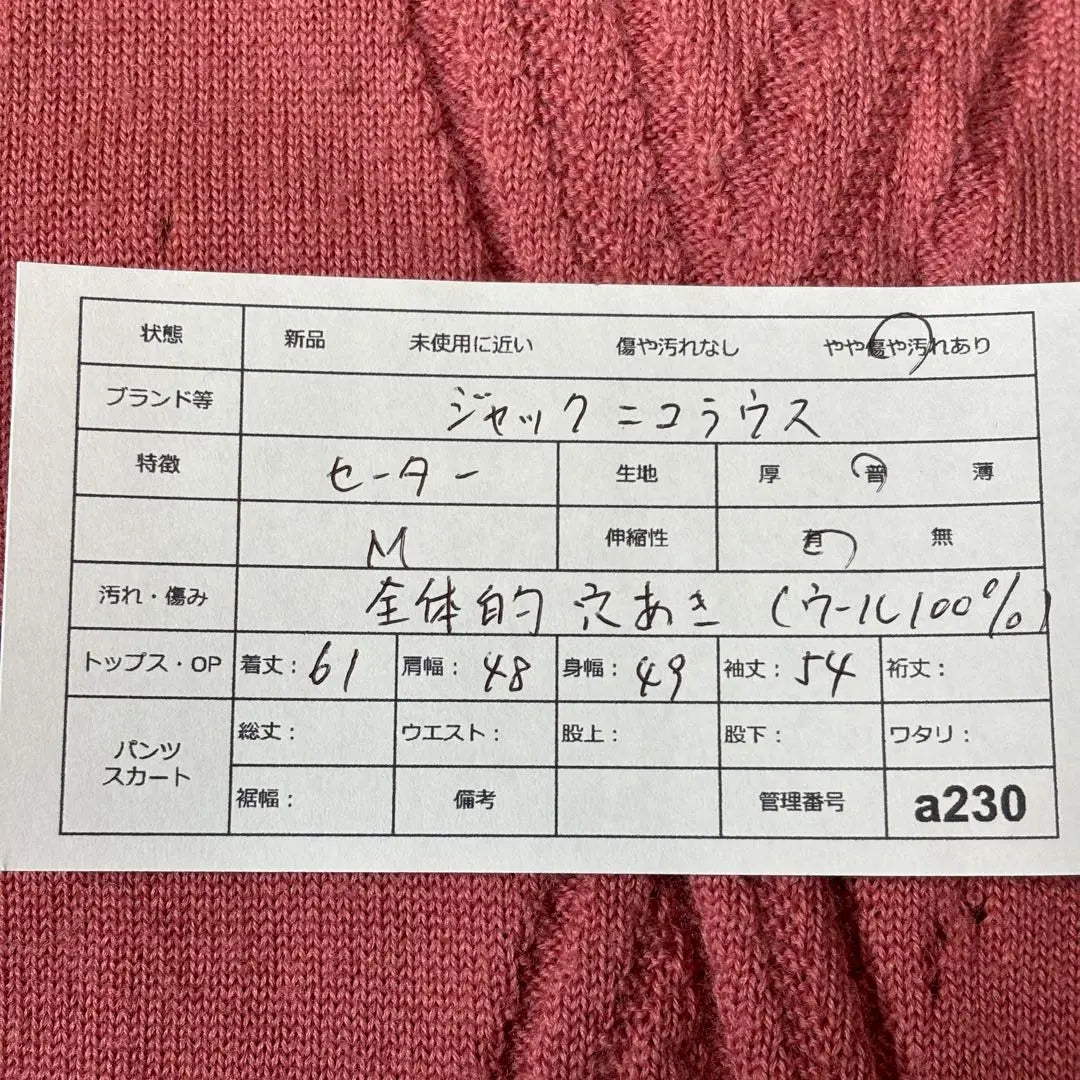 状態 新品 未使用に近い 傷や汚れなし やや傷や汚れあり
ブランド等 ジャックニコラウス
特徴 セーター 生地 厚 普 薄
M 伸縮性 有 無
汚れ・傷み 全体的 穴あき (ウール100%)
トップス・OP 着丈:61 肩幅:48 身幅:49 袖丈:54 裄丈:
パンツ スカート 総丈: ウエスト: 股上: 股下: ワタリ:
裾幅: 備考 管理番号 a230